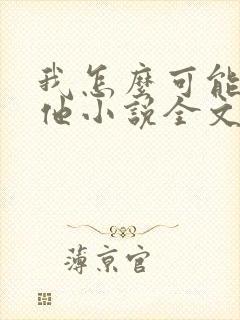 我怎麽可能
他小說全文
薄京官